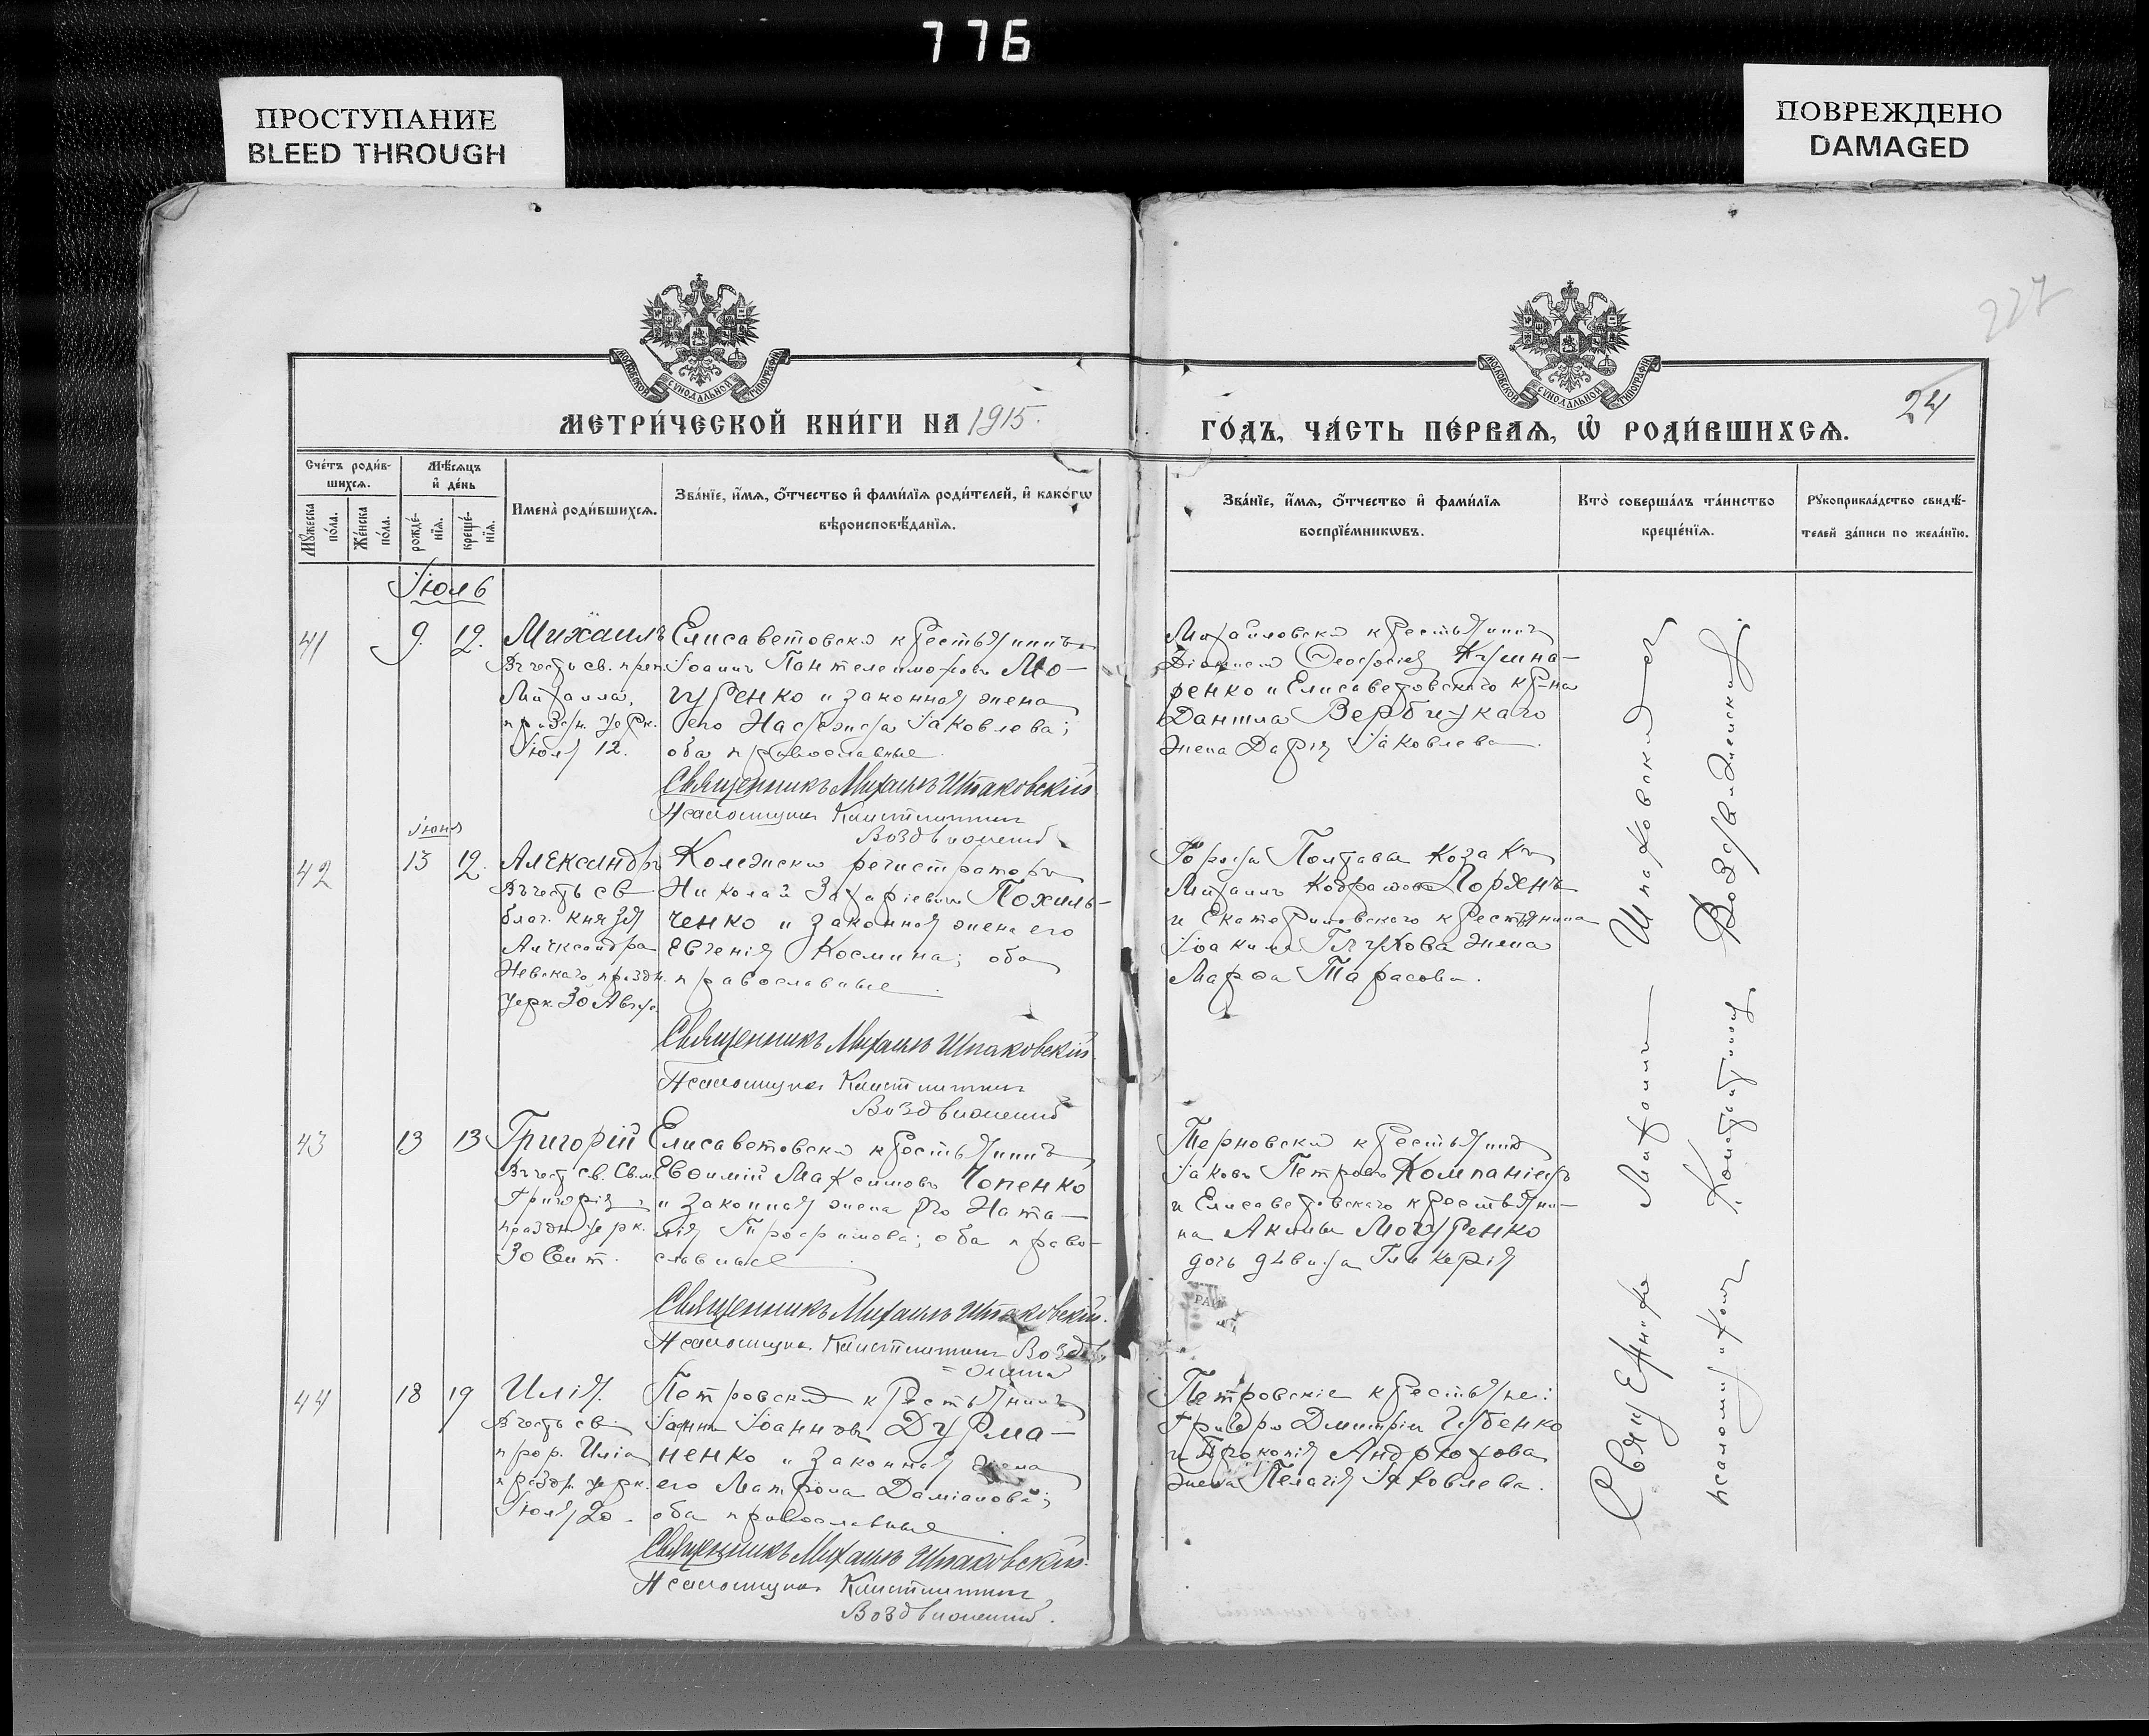 776
ПРОСТУПАНИЕ
BLEED THROUGH
ПОВРЕЖДЕНО
DAMAGED
227
24
МОСКОВСКОЙ СѴНОДАЛЬНОЙ ТИПОГРАФІИ
МОСКОВСКОЙ СѴНОДАЛЬНОЙ ТИПОГРАФІИ
МЕТРИ́ЧЕСКОЙ КНИ́ГИ НА 1915.
ГО́ДЪ, ЧА́СТЬ ПЕ́РВАЯ, Ѡ҆ РОДИ́ВШИХСЯ.
Сче́тъ роди́в-
шихся.
Мѣ́сяцъ
и҆ де́нь
Мꙋ́жеска по́ла.
Же́нска по́ла.
рожде́-
нїѧ.
креще́-
нїѧ.
Имена̀ роди́вшихся.
Зва́нїе, и҆́мя, ѻ҆́тчество и҆ фами́лїя роди́телей, и҆ како́гѡ
вѣроисповѣ́данїя.
Зва́нїе, и҆́мя, ѻ҆́тчество и҆ фами́лїя
воспрїе́мникѡвъ.
Кто̀ соверша́лъ та́инство
креще́нїя.
Рꙋкоприкла́дство свидѣ́-
телей за́писи по жела́нїю.
Іюль
41 9. 12. Михаилъ
Въ честь св. преп.
Михаила,
праздн. церк.
Іюля 12.
Елисаветовскій крестьянинъ
Іоаннъ Пантелеимоновъ Мо-
гуренко и законная жена
его Настасья Іаковлева;
оба православные
Священникъ Михаилъ Шпаковскій
Псаломщикъ Константинъ
Воздвиженскій
Михайловскій крестьянинъ
Ѳеодосіев Кушна-
ренко и Елисаветовскаго кр-на
Даніила Вербицкаго
жена Дарія Іаковлева.
іюня
42 13 12. Александръ
Въ честь св
благ. князя
Александра
Невскаго праздн.
церк. 30 Авгус.
Коллежскій регистраторъ
Николай Захаріевичъ Похиль-
ченко и законная жена его
Евгенія Космина; оба
православные
Священникъ Михаилъ Шпаковскій.
Псаломщикъ Константинъ
Воздвиженскій
Города Полтавы козакъ
Михаилъ
и Екатериновскаго крестьянина
Іоакима Глухова жена
Марѳа Тарасова.
43 13 13 Григорій
Въ честь св. Свм.
Григорія
праздн. церк.
30 Сент.
Елисаветовскій крестьянинъ
Евѳимій Максимовъ Чопенко
и законная жена его Ната-
лія Трофимова; оба право-
славные
Священникъ Михаилъ Шпаковскій.
Псаломщикъ Константинъ Воздви-
=женскій
Терновскій крестьянинъ
Іаковъ Петровъ Компаніецъ
и Елисаветовскаго крестьяни-
на Акима Могуренко
дочь дѣвица Гликерія
44 18 19 Илія.
Въ честь св
прор. Иліи
праздн. церк.
Іюля 20.
Петровскій крестьянинъ
Іоаннъ Іоанновъ Дурма-
ненко и законная жена
его Матрона Даміанова;
оба православные
Священникъ Михаилъ Шпаковскій.
Псаломщикъ Константинъ
Воздвиженскій.
Петровскіе крестьяне:
Григорій Димитріев Губенко
и Прокопія Андрюхова
жена Пелагія Іаковлева.
Священникъ Михаилъ Шпаковскій
псаломщикомъ Константиномъ Воздвиженскимъ.